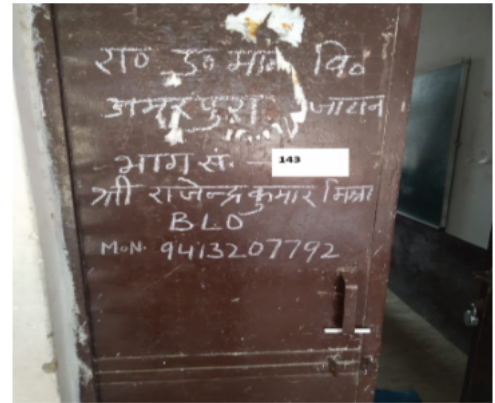 रा० उ० मा० वि०
अमरपुरा जाटान
भाग सं. - 143
श्री राजेन्द्र कुमार मिश्रा
BLO
M.N. 9413207792